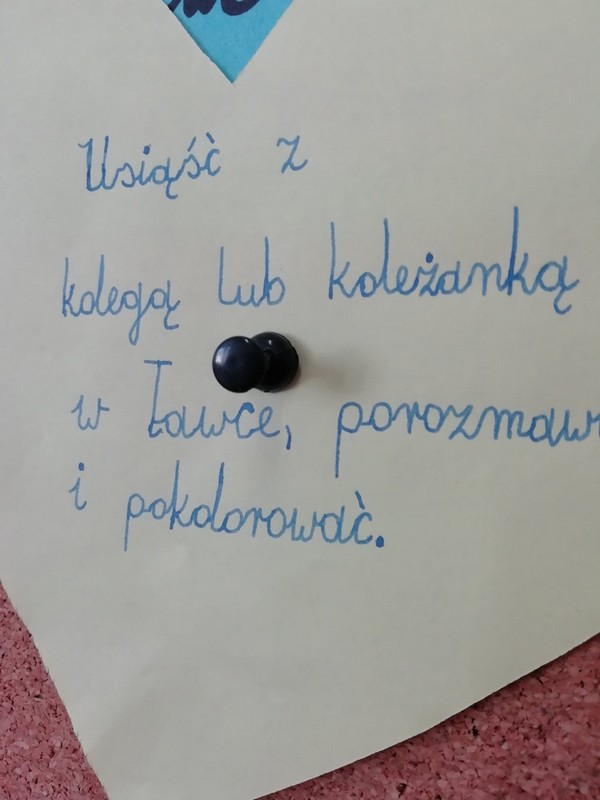 Usiąść z
kolegą lub koleżanką
w ławce, porozmaw
i pokolorować.